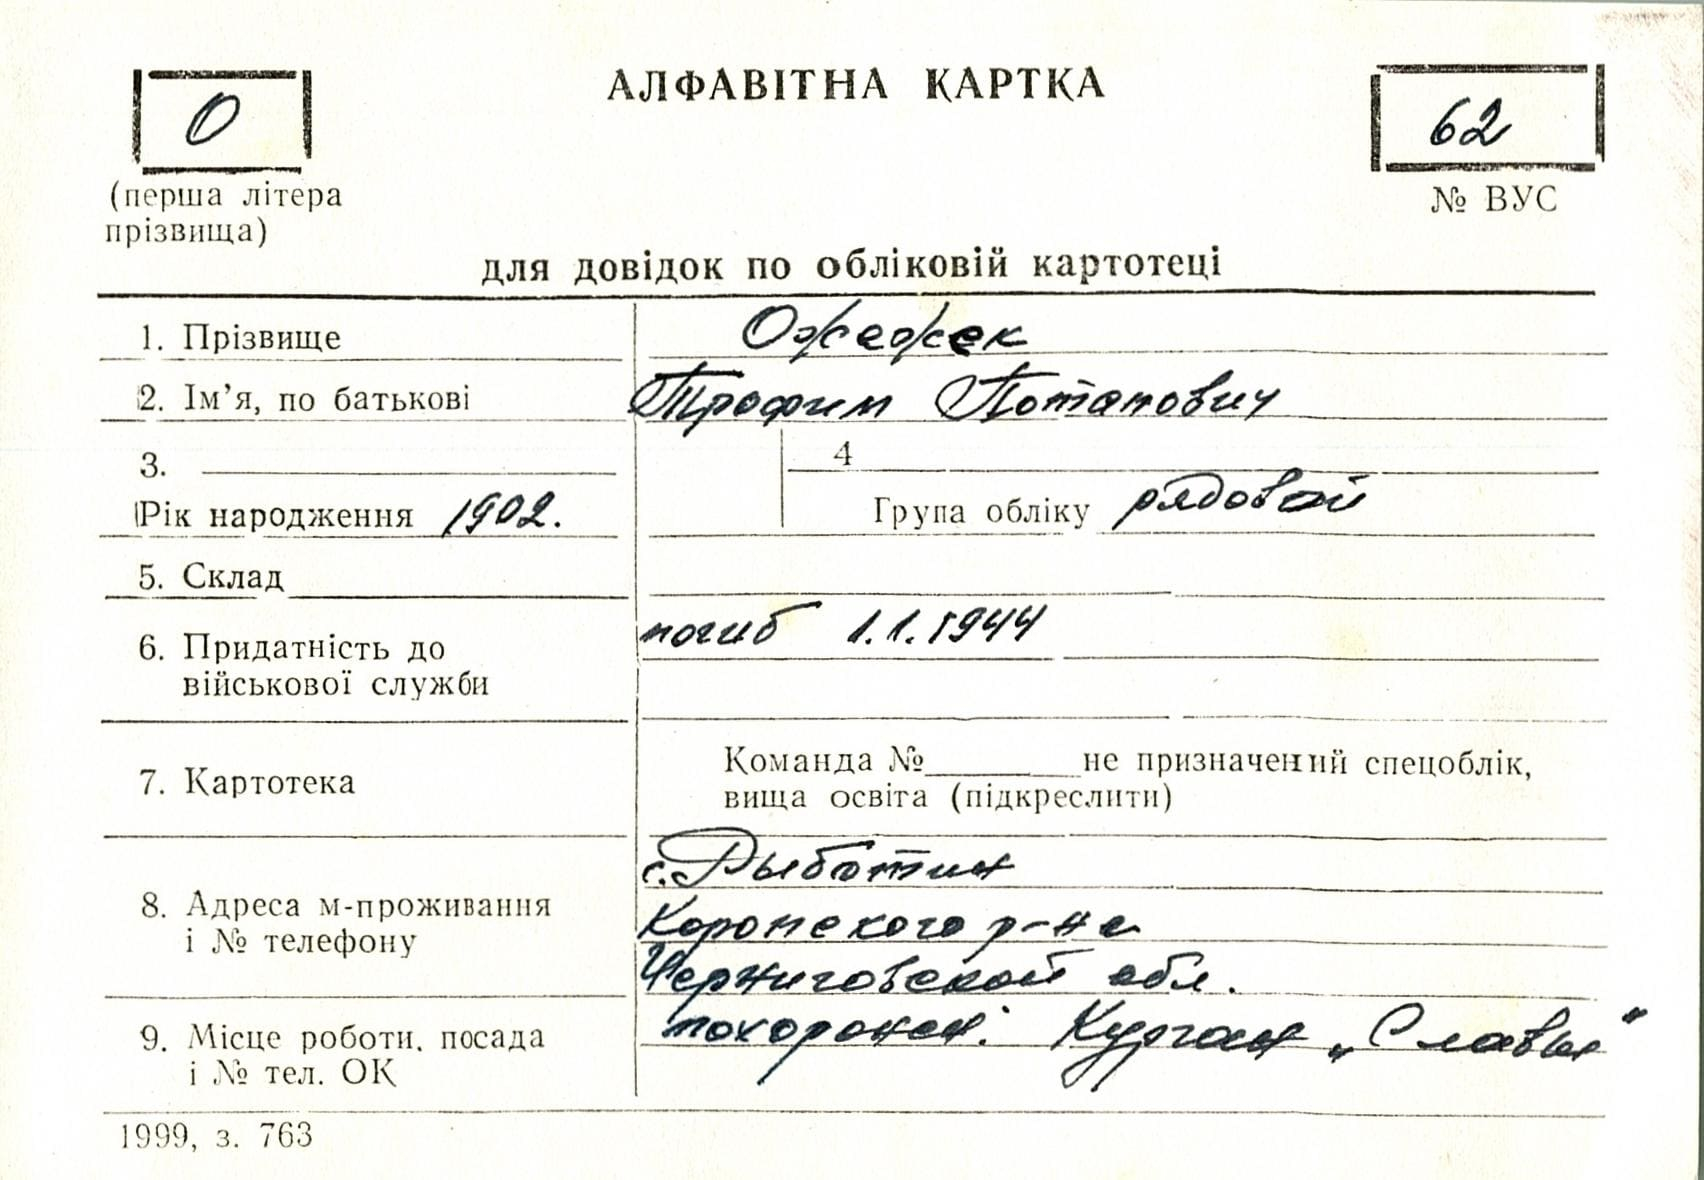 АЛФАВІТНА КАРТКА
О
62
(перша літера
прізвища)
№ ВУС
для довідок по обліковій картотеці
1. Прізвище Ожежек
2. Ім’я, по батькові Трофим Потапович
3. 4
Рік народження 1902. Група обліку рядовой
5. Склад
6. Придатність до погиб 1.1.1944
військової служби
7. Картотека
Команда №______ не призначений спецоблік,
вища освіта (підкреслити)
с. Рыботин
8. Адреса м-проживання Коропского р-на
і № телефону
Черниговской обл.
9. Місце роботи, посада похоронен: Курган „Славы“
і № тел. ОК
1999, з. 763